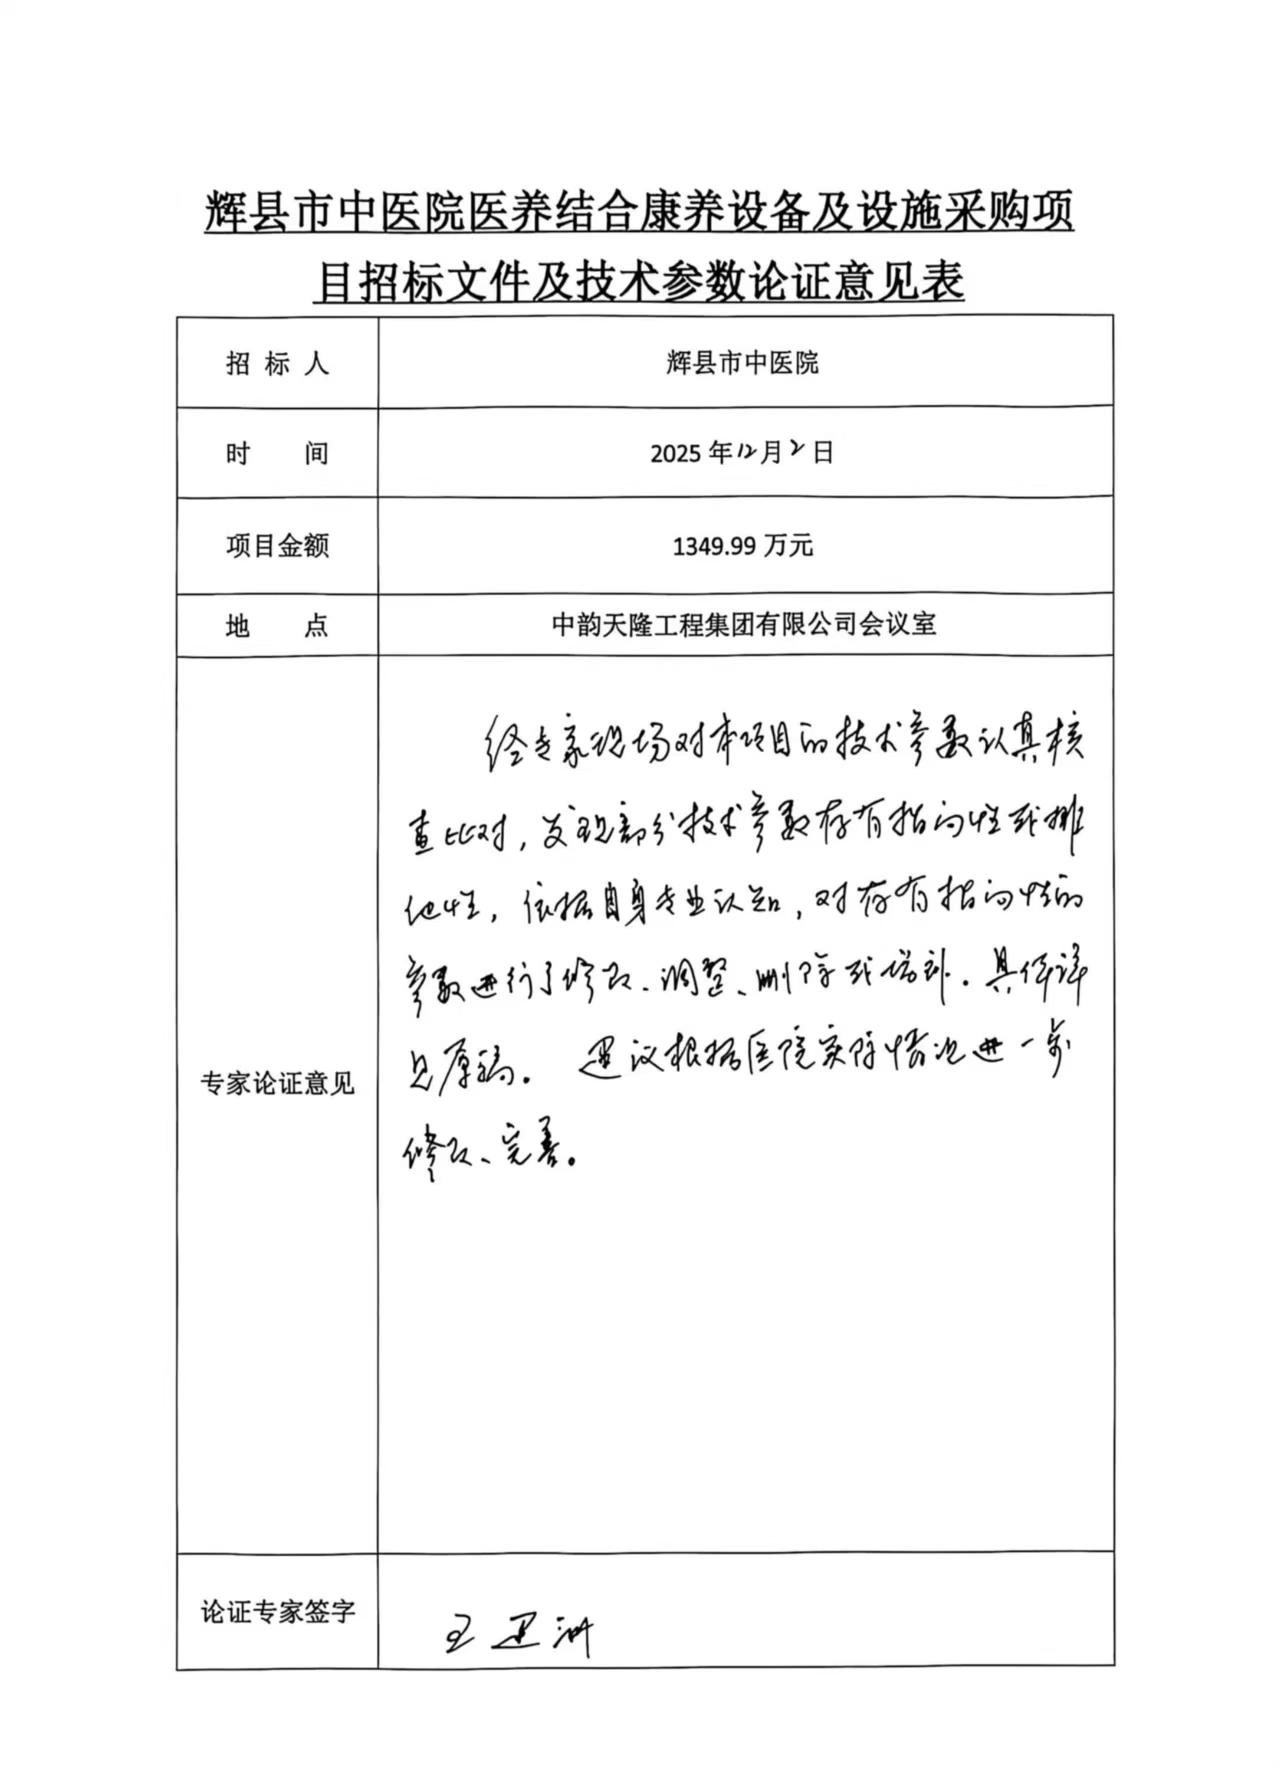 辉县市中医院医养结合康养设备及设施采购项
目招标文件及技术参数论证意见表
招标人 辉县市中医院
时间 2025年12月2日
项目金额 1349.99万元
地点 中韵天隆工程集团有限公司会议室
专家论证意见
经专家现场对本项目的技术参数认真核
查比对，发现部分技术参数存有指向性或排
他性，依据自身专业认知，对存有指向性的
参数进行了修改、调整、删除或增补。具体详
见原稿。建议根据医院实际情况进一步
修改、完善。
论证专家签字 王建